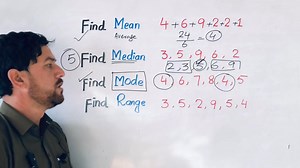 Find Mean 4+6+9+2+2+1
Average 24/6 = 4
5 Find Median 3, 5, 9, 6, 2
2, 3, 5, 6, 9
Find Mode 4, 6, 7, 8, 4, 5
Find Range 3, 5, 2, 9, 5, 4